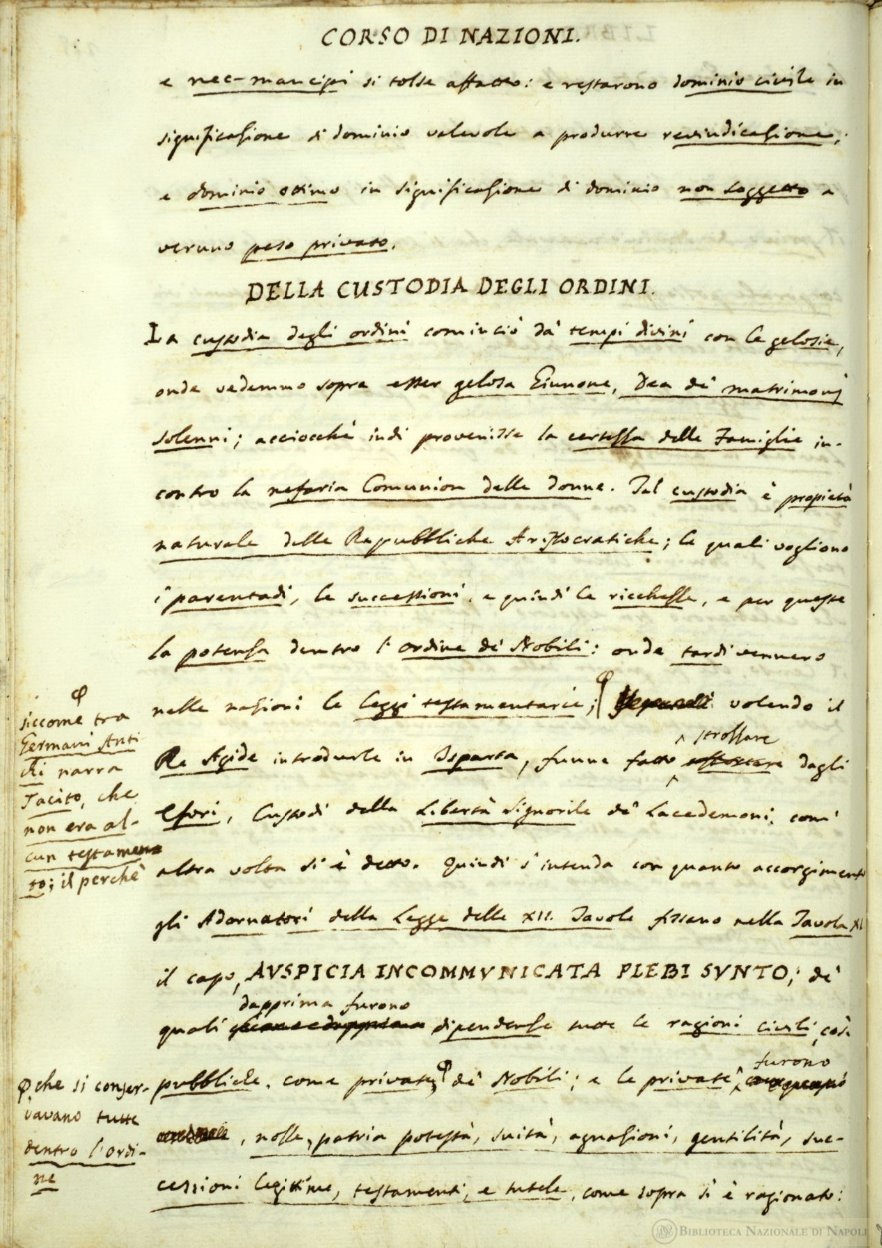 CORSO DI NAZIONI.
e nec-mancipi si tolse affatto: e restarono dominio civile in
significazione di dominio valevole a produrre revindicazione;
e dominio ottimo in significazione di dominio non soggetto a
veruno peso privato.
DELLA CUSTODIA DEGLI ORDINI.
La custodia degli ordini cominciò da' tempi divini con le gelosie,
onde vedemmo sopra esser gelosa Giunone, Dea de' matrimonj
solenni; acciocchè indi provenisse la certezza delle Famiglie in-
contro la nefaria Comunion delle donne. Tal custodia è propietà
naturale delle Repubbliche Aristocratiche; le quali vogliono
i parentadi, le successioni, e quindi le ricchezze, e per queste
la potenza dentro l'ordine de' Nobili: onde tardi vennero
nelle nazioni le leggi testamentarie; volendo il
strozzare
Re Agide introdurle in Isparta, funne fatto dagli
Efori, Custodi della Libertà Signorile de' Lacedemoni, com'
altra volta si è detto. Quindi s'intenda con quanto accorgimento
gli Adornatori della Legge delle XII. Tavole fissano nella Tavola XI.
il capo, AVSPICIA INCOMMVNICATA PLEBI SVNTO; de'
dapprima furono
quali dipendenze tutte le ragioni civili, così
furono
pubbliche, come private, de' Nobili; e le private,
nozze, patria potestà, suità, agnazioni, gentilità, suc-
cessioni legittime, testamenti, e tutele, come sopra si è ragionato:
siccome tra
Germani Anti
chi narra
Tacito, che
non era al-
cun testamen
to; il perchè
che si conser-
vavano tutte
dentro l'ordi-
ne
BIBLIOTECA NAZIONALE DI NAPOLI